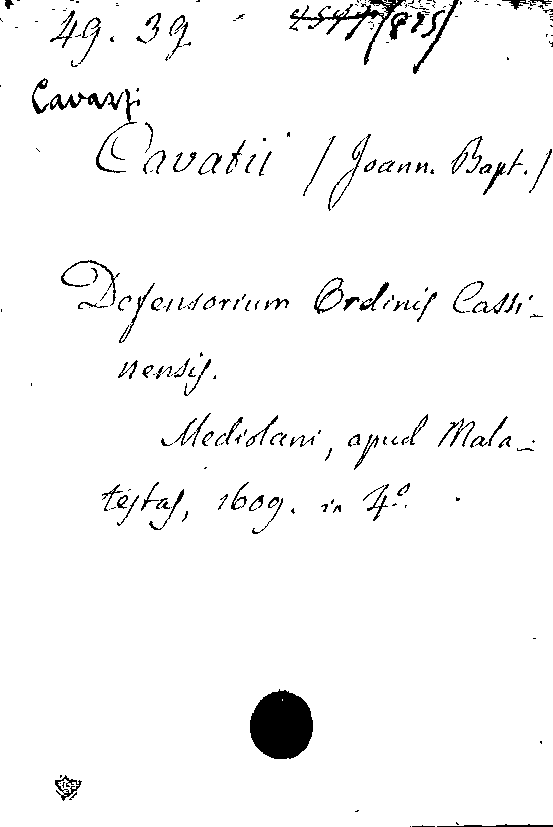 49. 39
(825)
Cavazzi
Cavatii (Joann. Bapt.)
Defensorium Ordinis Cassi-
nensis.
Mediolani, apud Mala-
testas, 1609. in 4º.